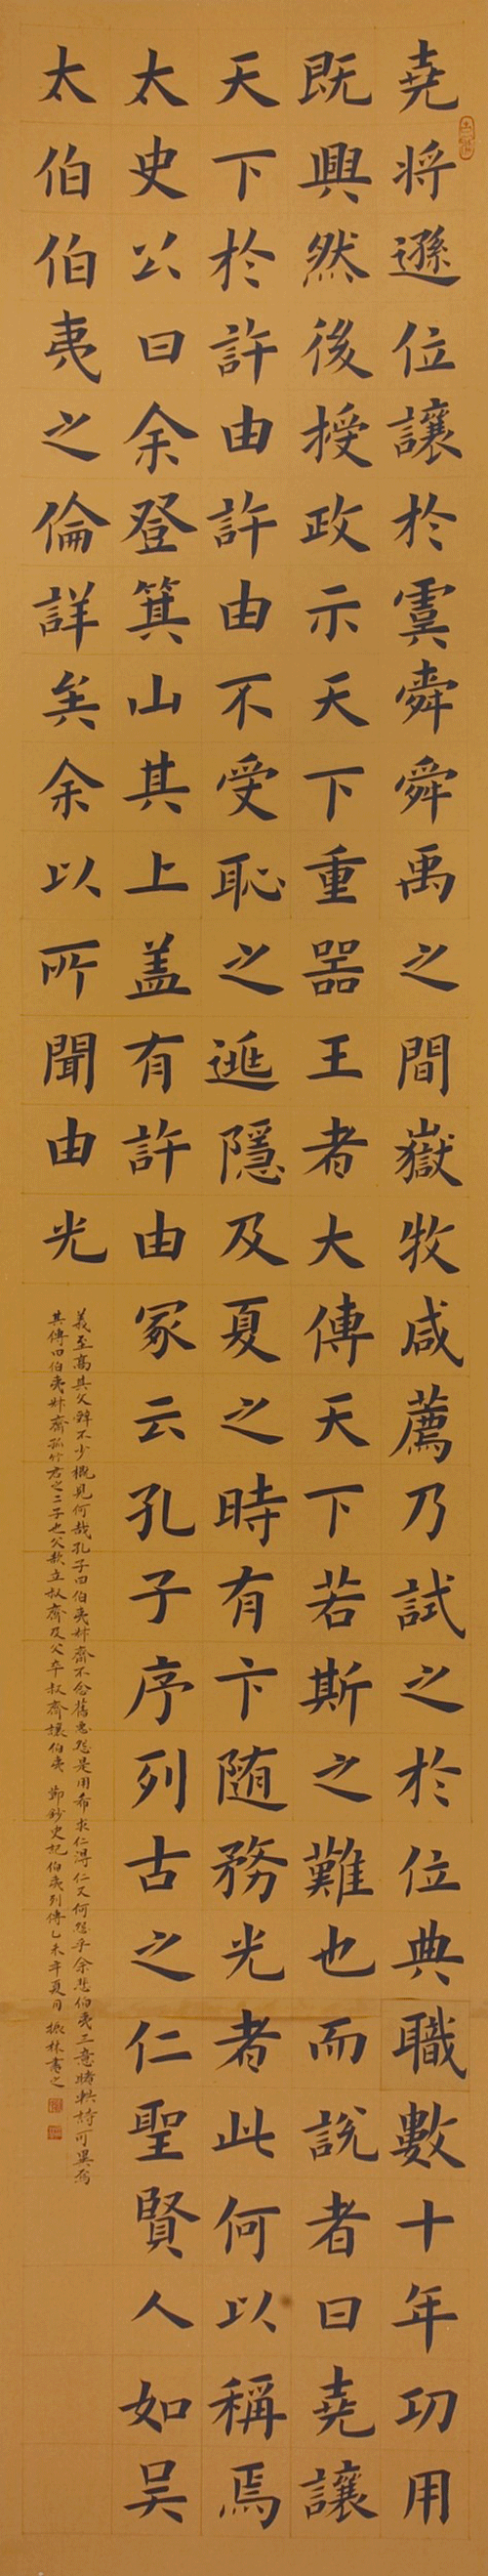 堯将遜位讓於虞舜舜禹之間嶽牧咸薦乃試之於位典職數十年功用
既興然後授政示天下重器王者大傳天下若斯之難也而說者曰堯讓
天下於許由許由不受恥之逃隱及夏之時有卞随務光者此何以稱焉
太史公曰余登箕山其上盖有許由冢云孔子序列古之仁聖賢人如吴
太伯伯夷之倫詳矣余以所聞由光
義至高其文辞不少概見何哉孔子曰伯夷叔齊不念舊惡怨是用希求仁得仁又何怨乎余悲伯夷之意睹軼詩可異焉
其傳曰伯夷叔齊孤竹君之二子也父欲立叔齊及父卒叔齊讓伯夷 節鈔史記伯夷列傳乙未年夏月振林書之